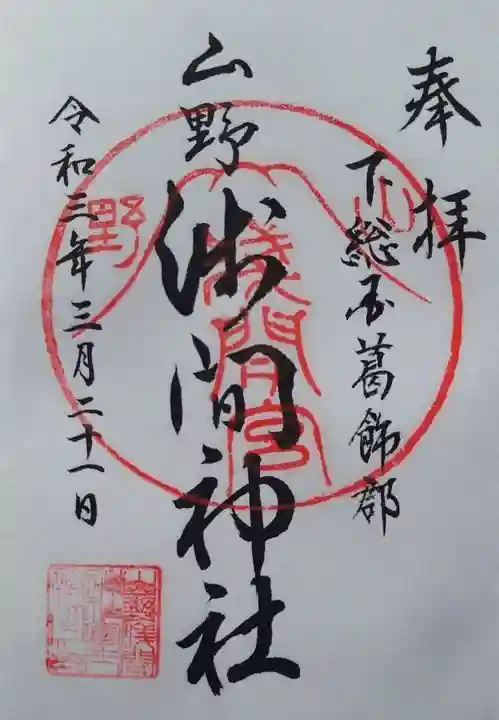 奉拝
下総国葛飾郡
山野浅間神社
令和三年三月二十一日
山野
浅間宮